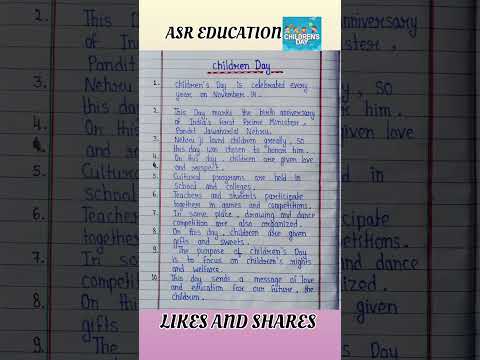 ASR EDUCATION
CHILDREN'S
DAY
Children Day
1. Children's Day is celebrated every
year on November 14.
2. This Day marks the birth anniversary
of India's first Prime Minister,
Pandit Jawaharlal Nehru.
3. Nehru ji loved children greatly, so
this day was chosen to honor him.
4. On this day, children are given love
and respect.
5. Cultural programs are held in
School and colleges.
6. Teachers and students participate
together in games and competitions.
7. In some place, drawing and dance
competition are also organized.
8. On this day, children are given
gifts and sweets.
9. The purpose of children's Day
is to focus on children's rights
and welfare.
10. This day sends a message of love
and education for our future, the
children.
LIKES AND SHARES
2. This D
of Indi
Pandit
3. Nehru
this day
4. On this
and
5. Cultural
school
6. Teachers
together
7. In so
compet
8. On th
gifts
9. The
anniversary
ster,
, so
him.
love
in
icipate
etitions.
dance
ized.
given